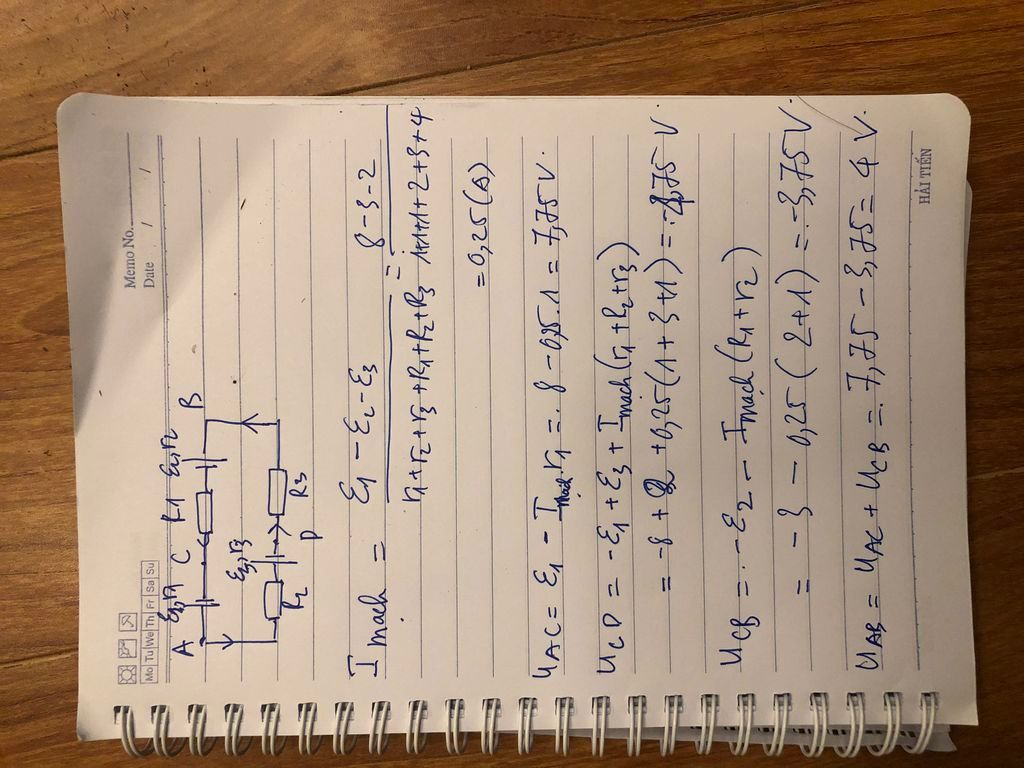 Memo No.
Date / /
Mo Tu We Th Fr Sa Su
A ε1,r1 C R1 ε2,r2 B
ε3,r3
R2 D R3
I mạch = ε1 - ε2 - ε3 / r1+r2+r3+R1+R2+R3 = 8-3-2 / 1+1+1+2+3+4
= 0,25(A)
UAC = ε1 - I mạch.r1 = 8 - 0,25.1 = 7,75V.
UCD = -ε1 + ε3 + I mạch(r1+R2+r3)
= -8 + 2 + 0,25(1+3+1) = -4,75V
UCB = -ε2 - I mạch(R1+r2)
= -3 - 0,25(2+1) = -3,75V.
UAB = UAC + UCB = 7,75 - 3,75 = 4V.
HẢI TIẾN